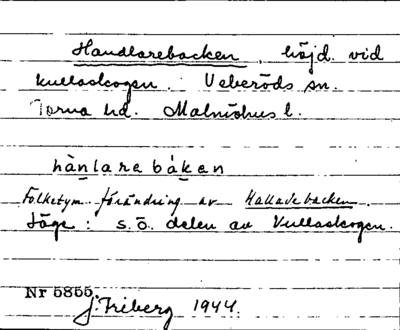 Handlarebacken, höjd vid
Kullaskogen. Veberöds sn.
Torna hd. Malmöhus l.
hànlarebáken
Folketym. förändring av Hallavebacken.
Läge: s.ö. delen av Kullaskogen.
Nr 5855.
J. Friberg 1944.